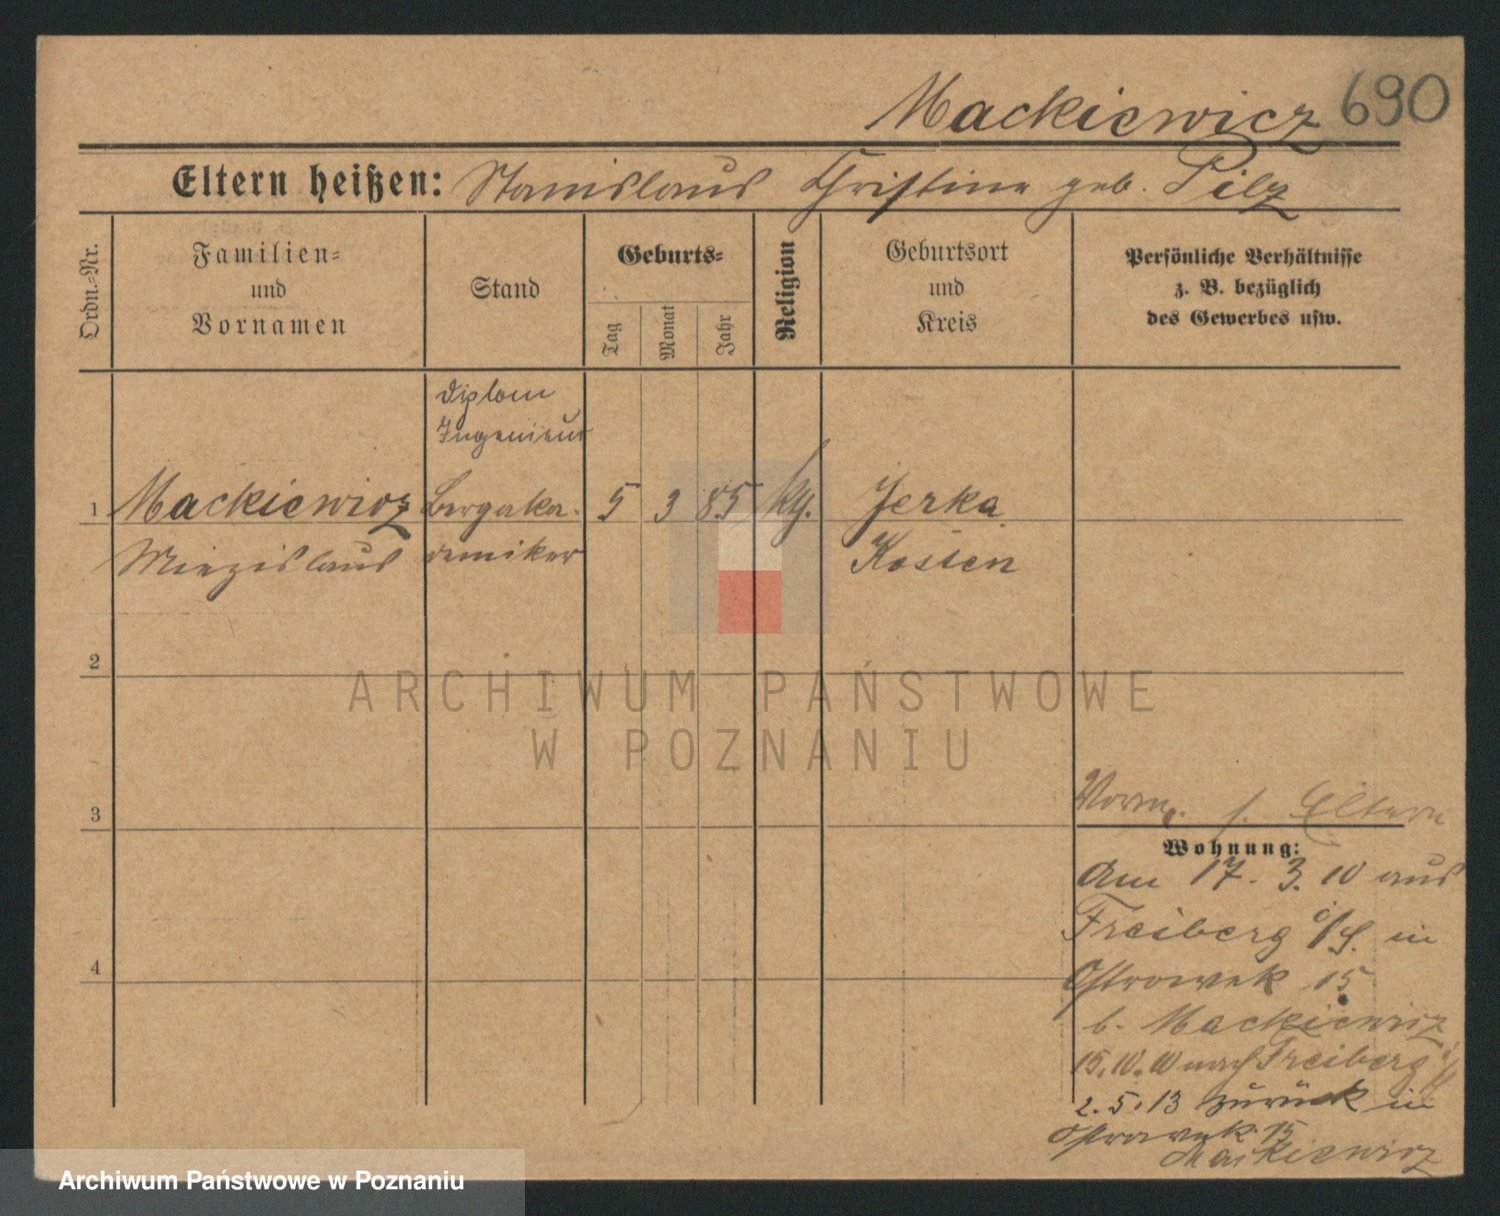 Mackiewicz 690
Eltern heißen: Stanislaus Christine geb. Pilz
Ordn.=Nr.
Familien=
und
Vornamen
Stand
Geburts=
Tag
Monat
Jahr
Religion
Geburtsort
und
Kreis
Persönliche Verhältnisse
z. B. bezüglich
des Gewerbes usw.
diplom
Ingenieur
1 Mackiewicz Bergaka- 5 3 85 kth. Jerka
Miezislaus demiker Kosten
2
ARCHIWUM PAŃSTWOWE
W POZNANIU
3
Vorm. s. Eltern
Wohnung:
Am 17. 3. 10 aus
Freiberg i/S. in
4
Ostrowek 15
b. Mackiewicz
15.10.10 nach Freiberg
2.5.13 zurück in
Ostrowek 15
Mackiewicz
Archiwum Państwowe w Poznaniu